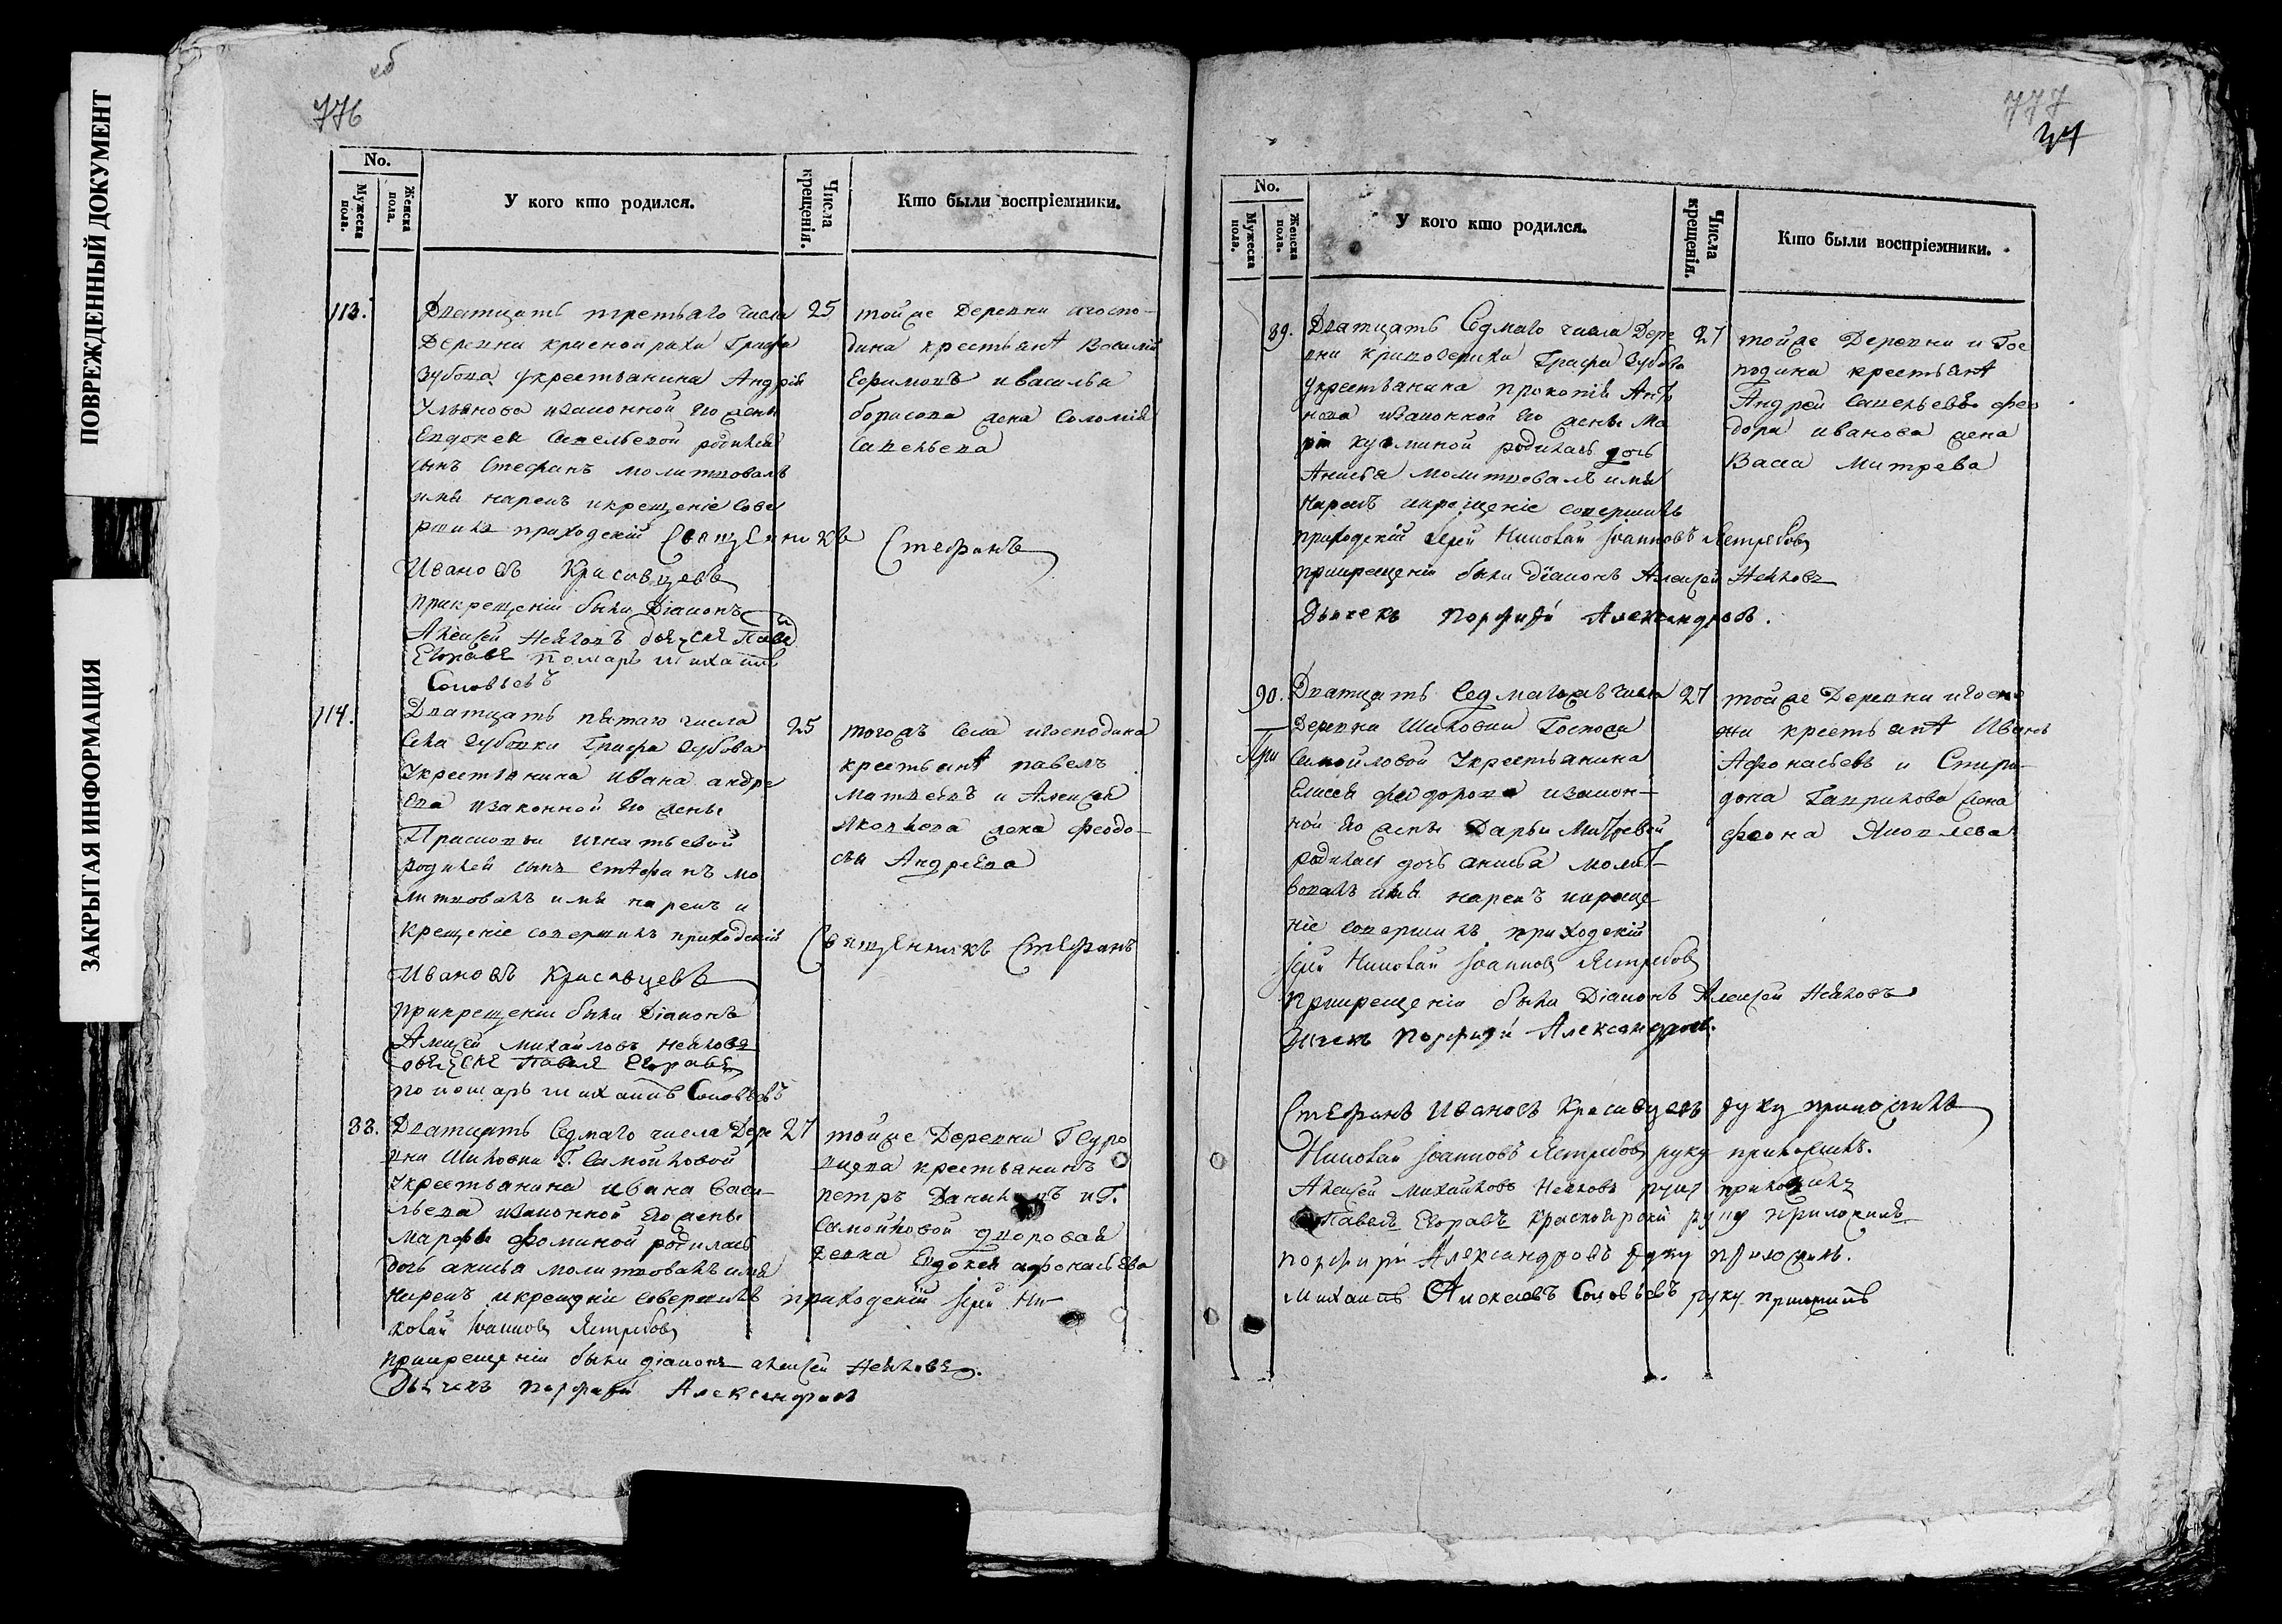 ПОВРЕЖДЕННЫЙ ДОКУМЕНТ
ЗАКРЫТАЯ ИНФОРМАЦИЯ
776
No.
Мужеска пола.
Женска пола.
У кого кто родился.
Числа крещенія.
Кто были воспріемники.
113.
Дватцать третьяго числа
Деревни красной рахи Графа
Зубова укрестьянина Андрѣя
Ульянова изаконной его жены
Евдокеи Савельевой родился
сынъ Стефанъ молитвовалъ
имя нарекъ икрещеніе сове
ршилъ приходскій Священникъ Стефанъ
Ивановъ Красавцевъ
прикрещеніи были Діаконъ
Алексей Нейловъ дьячекъ Павел
Егоравъ помарь михаилъ
Соловьевъ
25
тойже Деревни игоспо-
дина крестьянѣ Василій
Ефимовъ ивасилья
борисова жена Соломія
Савельева
114.
Дватцать пятаго числа
Села Зубовки Графа Зубова
Укрестьянина ивана андре
ева изаконной его жены
Праскопьи игнатьевой
родился сынъ стефанъ мо
литвовалъ имя нарекъ и
крещеніе совершилъ приходскій Священникъ Стефанъ
Ивановъ Красавцевъ
прикрещеніи были Діаконъ
Алексей михайловъ Нейловъ
дьячекъ Павелъ Егоравъ
пономарь михаилъ Соловьевъ
25
тогожъ села игосподина
крестьянѣ павелъ
матвеевъ и Алексея
Яковлева жена феодо-
сья Андреева
88.
Дватцать Седмаго числа Дере
вни Шиловки Г. Самойловой
укрестьянина ивана Васи-
льева изаконной его жены
марфы фоминой родилась
дочь анисья молитвовалъ имя
нарекъ икрещеніе совершилъ приходскій іерей Ни-
колай Іоанновъ Ястребовъ
прикрещеніи были діаконъ алексей Нейловъ.
Дьячекъ порфирій Александровъ
27
тойже Деревни
крестьянинъ
петръ и Г.
Самойловой дворовая
девка Евдокея афонасьева
777
34
No.
Мужеска пола.
Женска пола.
У кого кто родился.
Числа крещенія.
Кто были воспріемники.
89.
Дватцать Седмаго числа Дере
вни Графа Зубова
укрестьянина прокопія Анто
нова изаконной его жены Ма
ріи кузминой родилась дочь
Анисья молитвовалъ имя
нарекъ икрещеніе совершилъ
приходскій іерей Николай Іоанновъ Ястребовъ
прикрещеніи были діаконъ Алексей Нейловъ
Дьячекъ порфирій Александровъ.
27
тойже Деревни и Гос
подина крестьянѣ
Андрей Савельевъ фео
дора иванова жена
Васса митрева
90.
Дватцать Седмагожъ числа
Деревни Шиловки Госпожи
Самойловой Укрестьянина
Елисея феодорова изакон-
ной его жены Дарьи Митревой
родилась дочь анисья молит-
вовалъ имя нарекъ икреще-
ніе совершилъ приходскій
іерей Николай Іоанновъ Ястребовъ
прикрещеніи были Діаконъ Алексей Нейловъ
Дьячекъ порфирій Александровъ.
27
тойже Деревни игоспо
жи крестьянѣ Иванъ
Афонасьевъ и Спири-
дона Гаврилова жена
Яковлева
Стефанъ Ивановъ Красавцевъ руку приложилъ
Николай Іоанновъ Ястребовъ руку приложилъ.
Алексей михайловъ Нейловъ руку приложилъ
Павелъ Егоравъ руку приложилъ
порфирій Александровъ руку приложилъ.
михаилъ Соловьевъ руку приложилъ